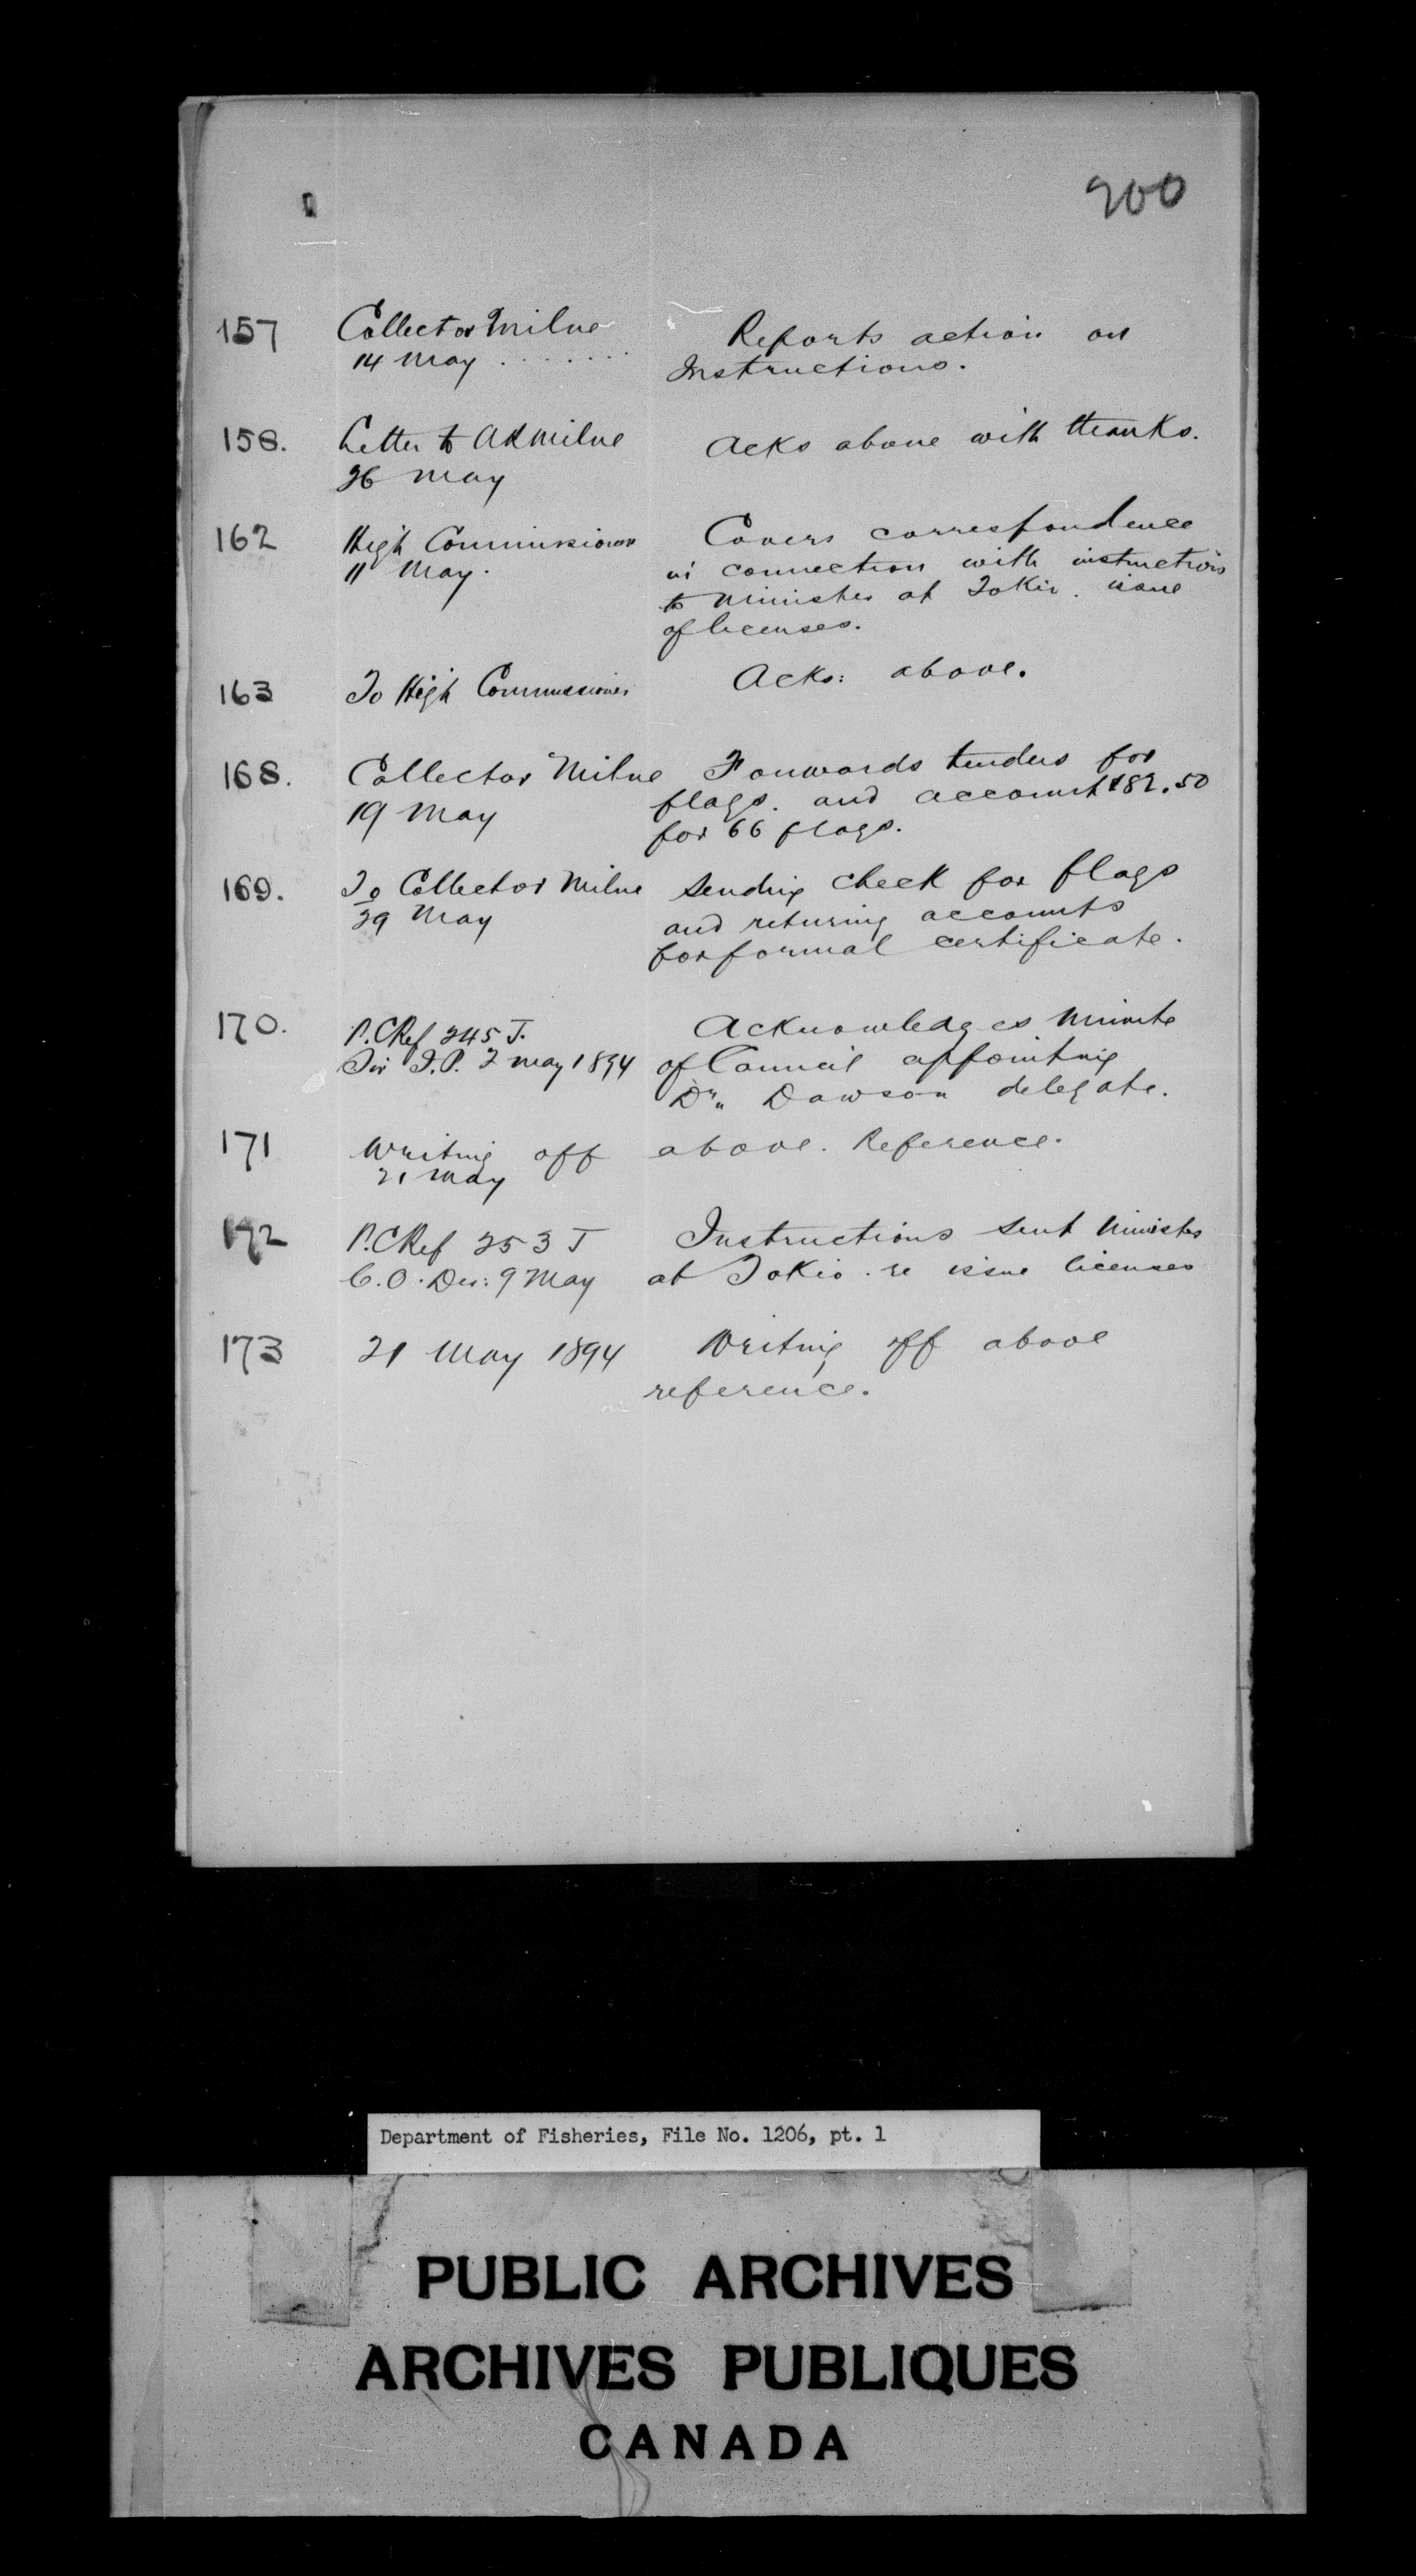 900
157 Collector Milne Reports action on
14 May . . . . . . . . Instructions.
158. Letter to A R Milne Acks above with thanks.
26 May
162 High Commissioner Covers correspondence
11 May. in connection with instructions
to Minister at Tokio. issue
of licenses.
163 To High Commissioner Acks: above.
168. Collector Milne Forwards tenders for
19 May flags. and account $82.50
for 66 flags.
169. To Collector Milne Sending check for flags
29 May and returning accounts
for formal certificate.
170. P.C Ref 245 J. Acknowledges Minute
Sir J.P. 2 May 1894 of Council appointing
Dr. Dawson delegate.
171 Writing off above. Reference.
21 May
172 P.C Ref 253 J Instructions sent Minister
C.O. Des: 9 May at Tokio. re issue licenses
173 21 May 1894 Writing off above
reference.
Department of Fisheries, File No. 1206, pt. 1
PUBLIC ARCHIVES
ARCHIVES PUBLIQUES
CANADA